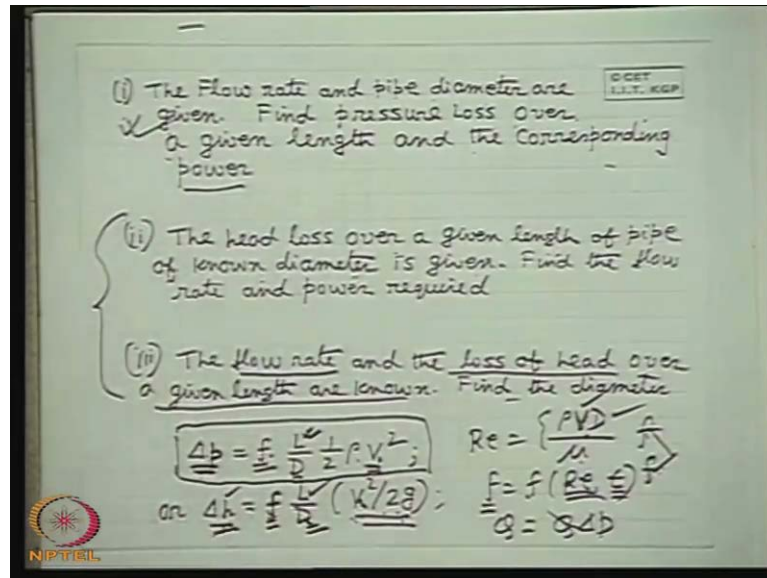 (i) The Flow rate and pipe diameter are
given. Find pressure Loss over
a given length and the corresponding
power
© CET
I.I.T. KGP
(ii) The head loss over a given length of pipe
of known diameter is given. Find the flow
rate and power required
(iii) The flow rate and the loss of head over
a given length are known. Find the diameter
Δp = f L/D 1/2 ρ V²;
or Δh = f L/D (V²/2g);
Re = ρVD/μ
f = f (Re, ε)
Q = QΔp
NPTEL